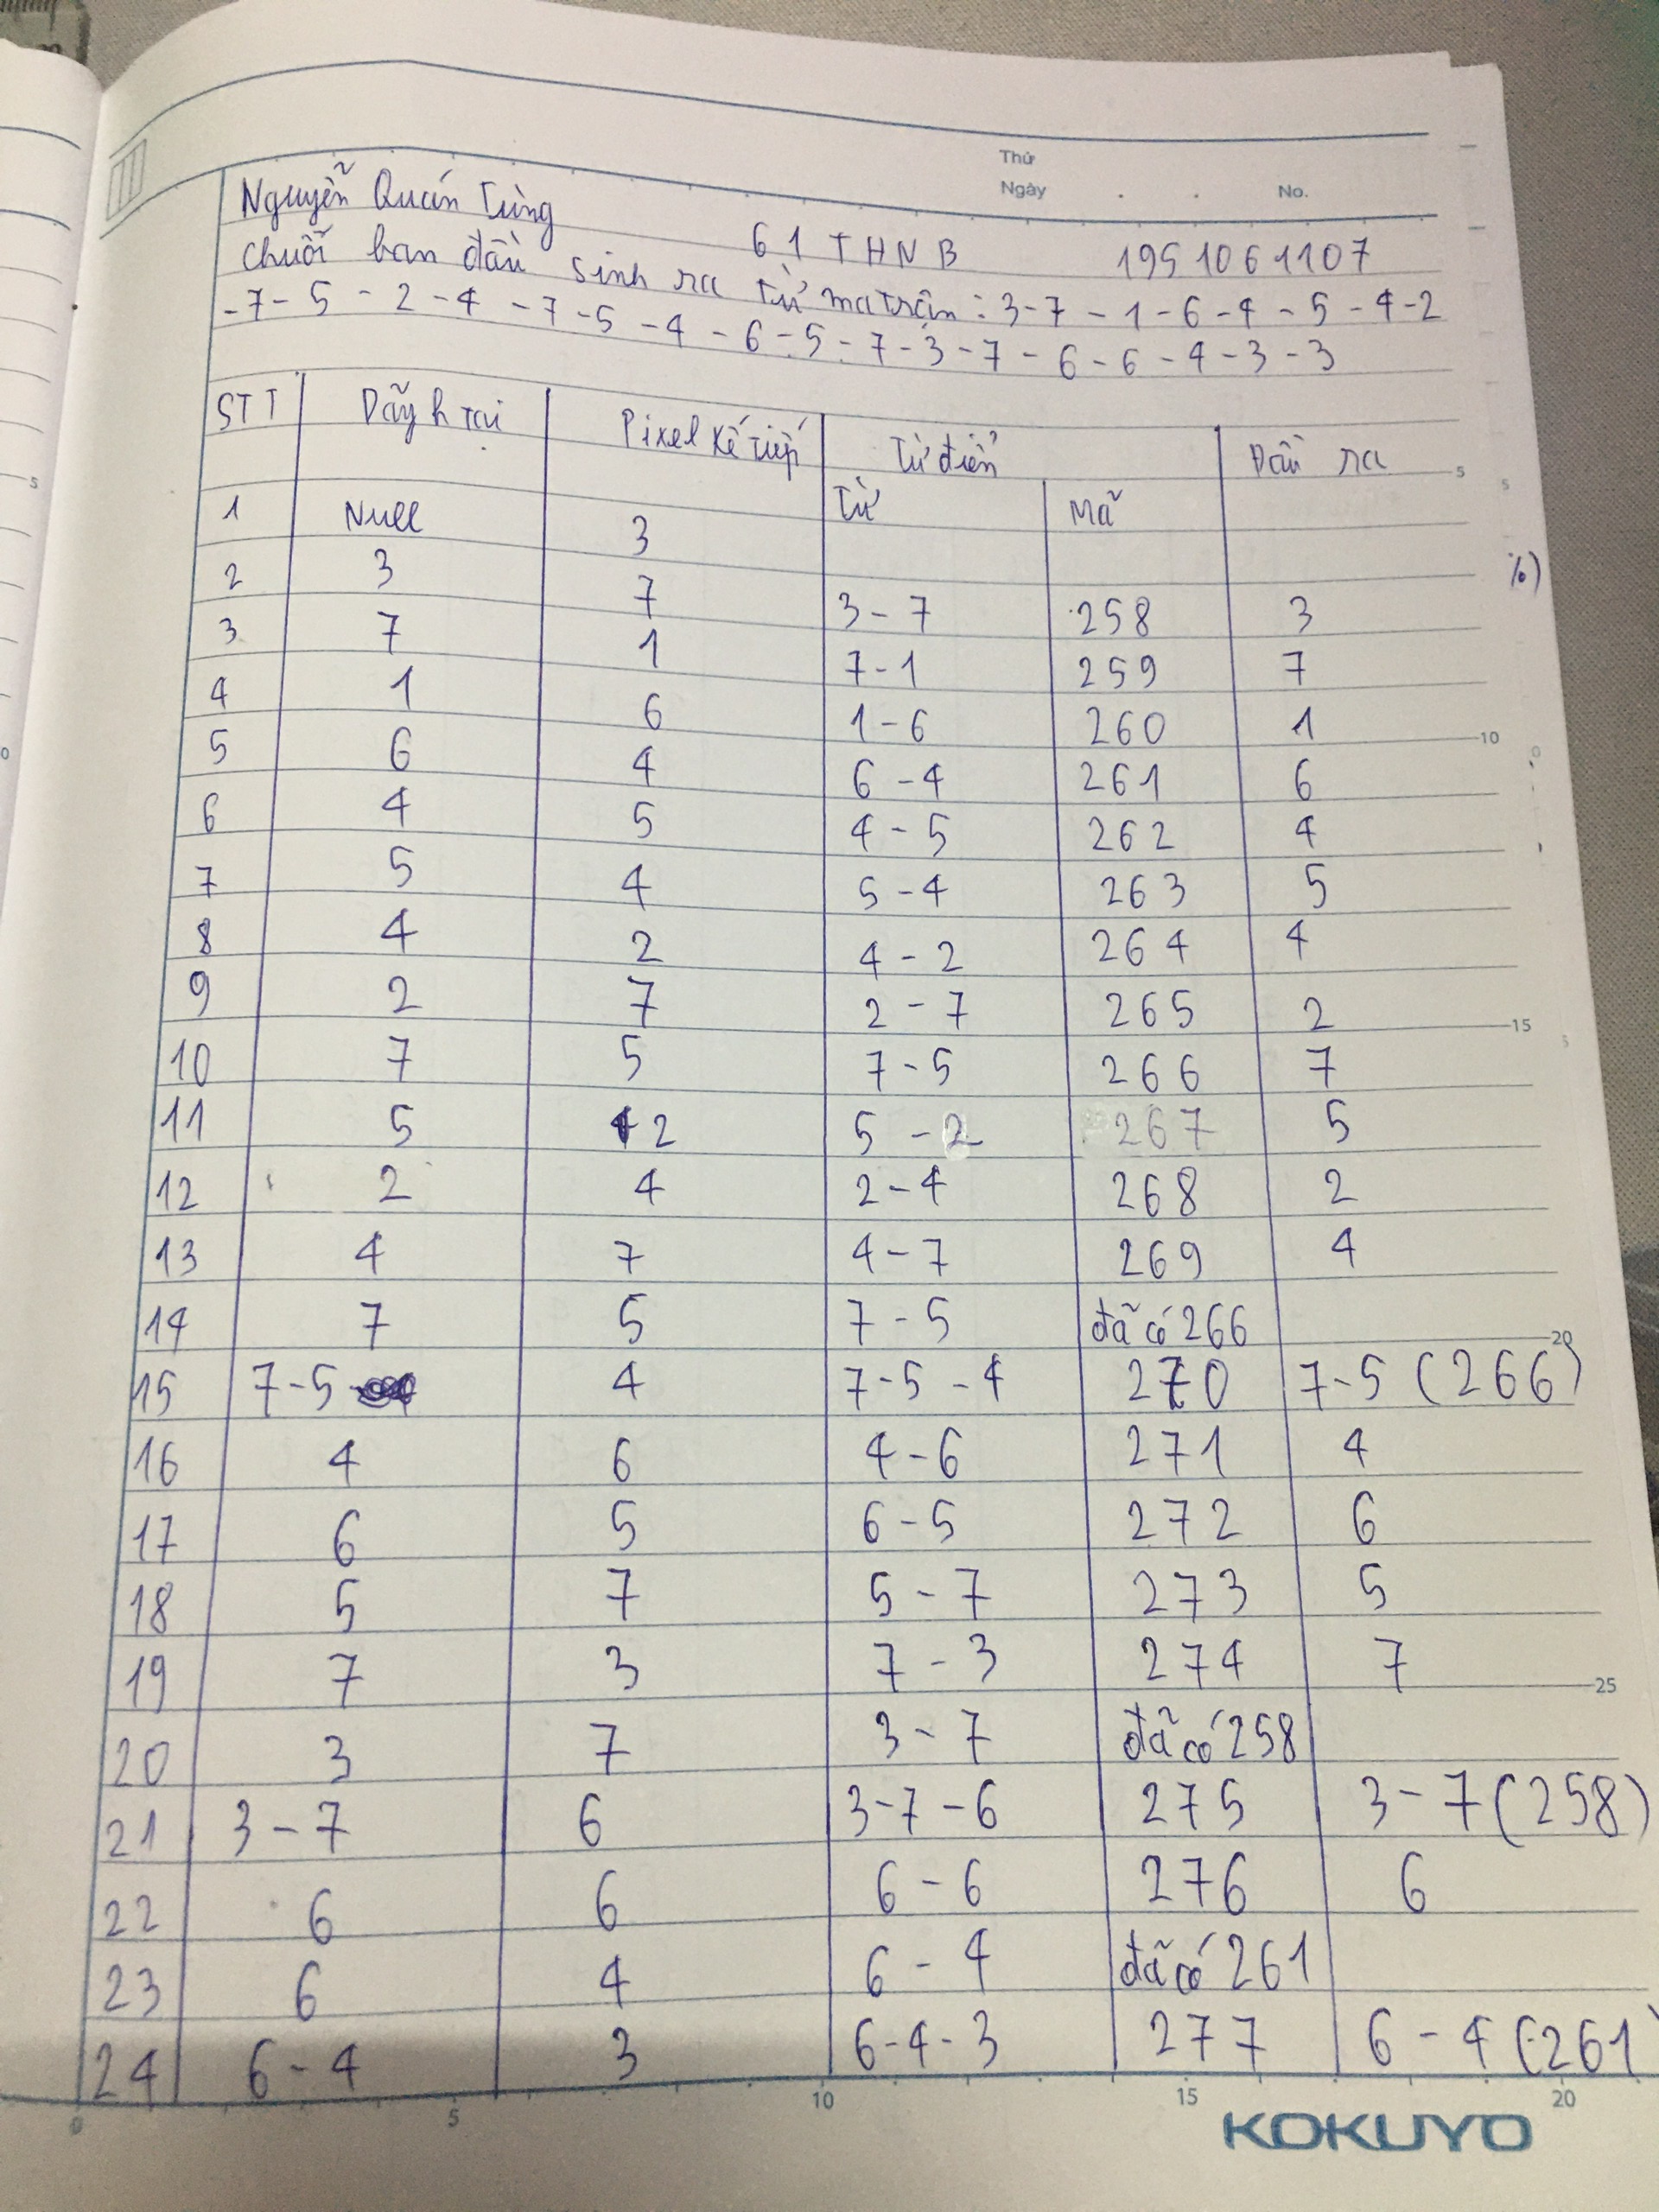 Thứ
Ngày . . No.
Nguyễn Quán Tùng
61 THNB 1951061107
Chuỗi ban đầu sinh ra từ ma trận: 3-7-1-6-4-5-4-2
-7-5-2-4-7-5-4-6-5-7-3-7-6-6-4-3-3
STT Dãy h tại Pixel kế tiếp Từ điển Đầu ra
Từ Mã
1 Null 3
2 3 7 3-7 258 3
3 7 1 7-1 259 7
4 1 6 1-6 260 1
5 6 4 6-4 261 6
6 4 5 4-5 262 4
7 5 4 5-4 263 5
8 4 2 4-2 264 4
9 2 7 2-7 265 2
10 7 5 7-5 266 7
11 5 2 5-2 267 5
12 2 4 2-4 268 2
13 4 7 4-7 269 4
14 7 5 7-5 đã có 266
15 7-5 4 7-5-4 270 7-5 (266)
16 4 6 4-6 271 4
17 6 5 6-5 272 6
18 5 7 5-7 273 5
19 7 3 7-3 274 7
20 3 7 3-7 đã có 258
21 3-7 6 3-7-6 275 3-7 (258)
22 6 6 6-6 276 6
23 6 4 6-4 đã có 261
24 6-4 3 6-4-3 277 6-4 (261)
5 10 15 20
KOKUYO